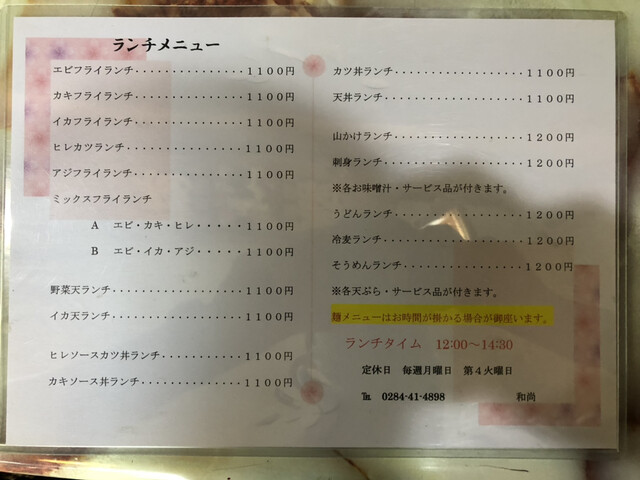 ランチメニュー
エビフライランチ・・・・・・・・・・・・・・・1100円
カキフライランチ・・・・・・・・・・・・・・・1100円
イカフライランチ・・・・・・・・・・・・・・・1100円
ヒレカツランチ・・・・・・・・・・・・・・・・1100円
アジフライランチ・・・・・・・・・・・・・・・1100円
ミックスフライランチ
A エビ・カキ・ヒレ・・・・・1100円
B エビ・イカ・アジ・・・・・1100円
野菜天ランチ・・・・・・・・・・・・・・・・・1100円
イカ天ランチ・・・・・・・・・・・・・・・・・1100円
ヒレソースカツ丼ランチ・・・・・・・・・・・・1100円
カキソース丼ランチ・・・・・・・・・・・・・・1100円
カツ丼ランチ・・・・・・・・・・・・・・・・・1100円
天丼ランチ・・・・・・・・・・・・・・・・・・1100円
山かけランチ・・・・・・・・・・・・・・・・・1200円
刺身ランチ・・・・・・・・・・・・・・・・・・1200円
※各お味噌汁・サービス品が付きます。
うどんランチ・・・・・・・・・・・・・・・・・1200円
冷麦ランチ・・・・・・・・・・・・・・・・・・1200円
そうめんランチ・・・・・・・・・・・・・・・・1200円
※各天ぷら・サービス品が付きます。
麺メニューはお時間が掛かる場合が御座います。
ランチタイム 12:00～14:30
定休日 毎週月曜日 第4火曜日
℡ 0284-41-4898 和尚